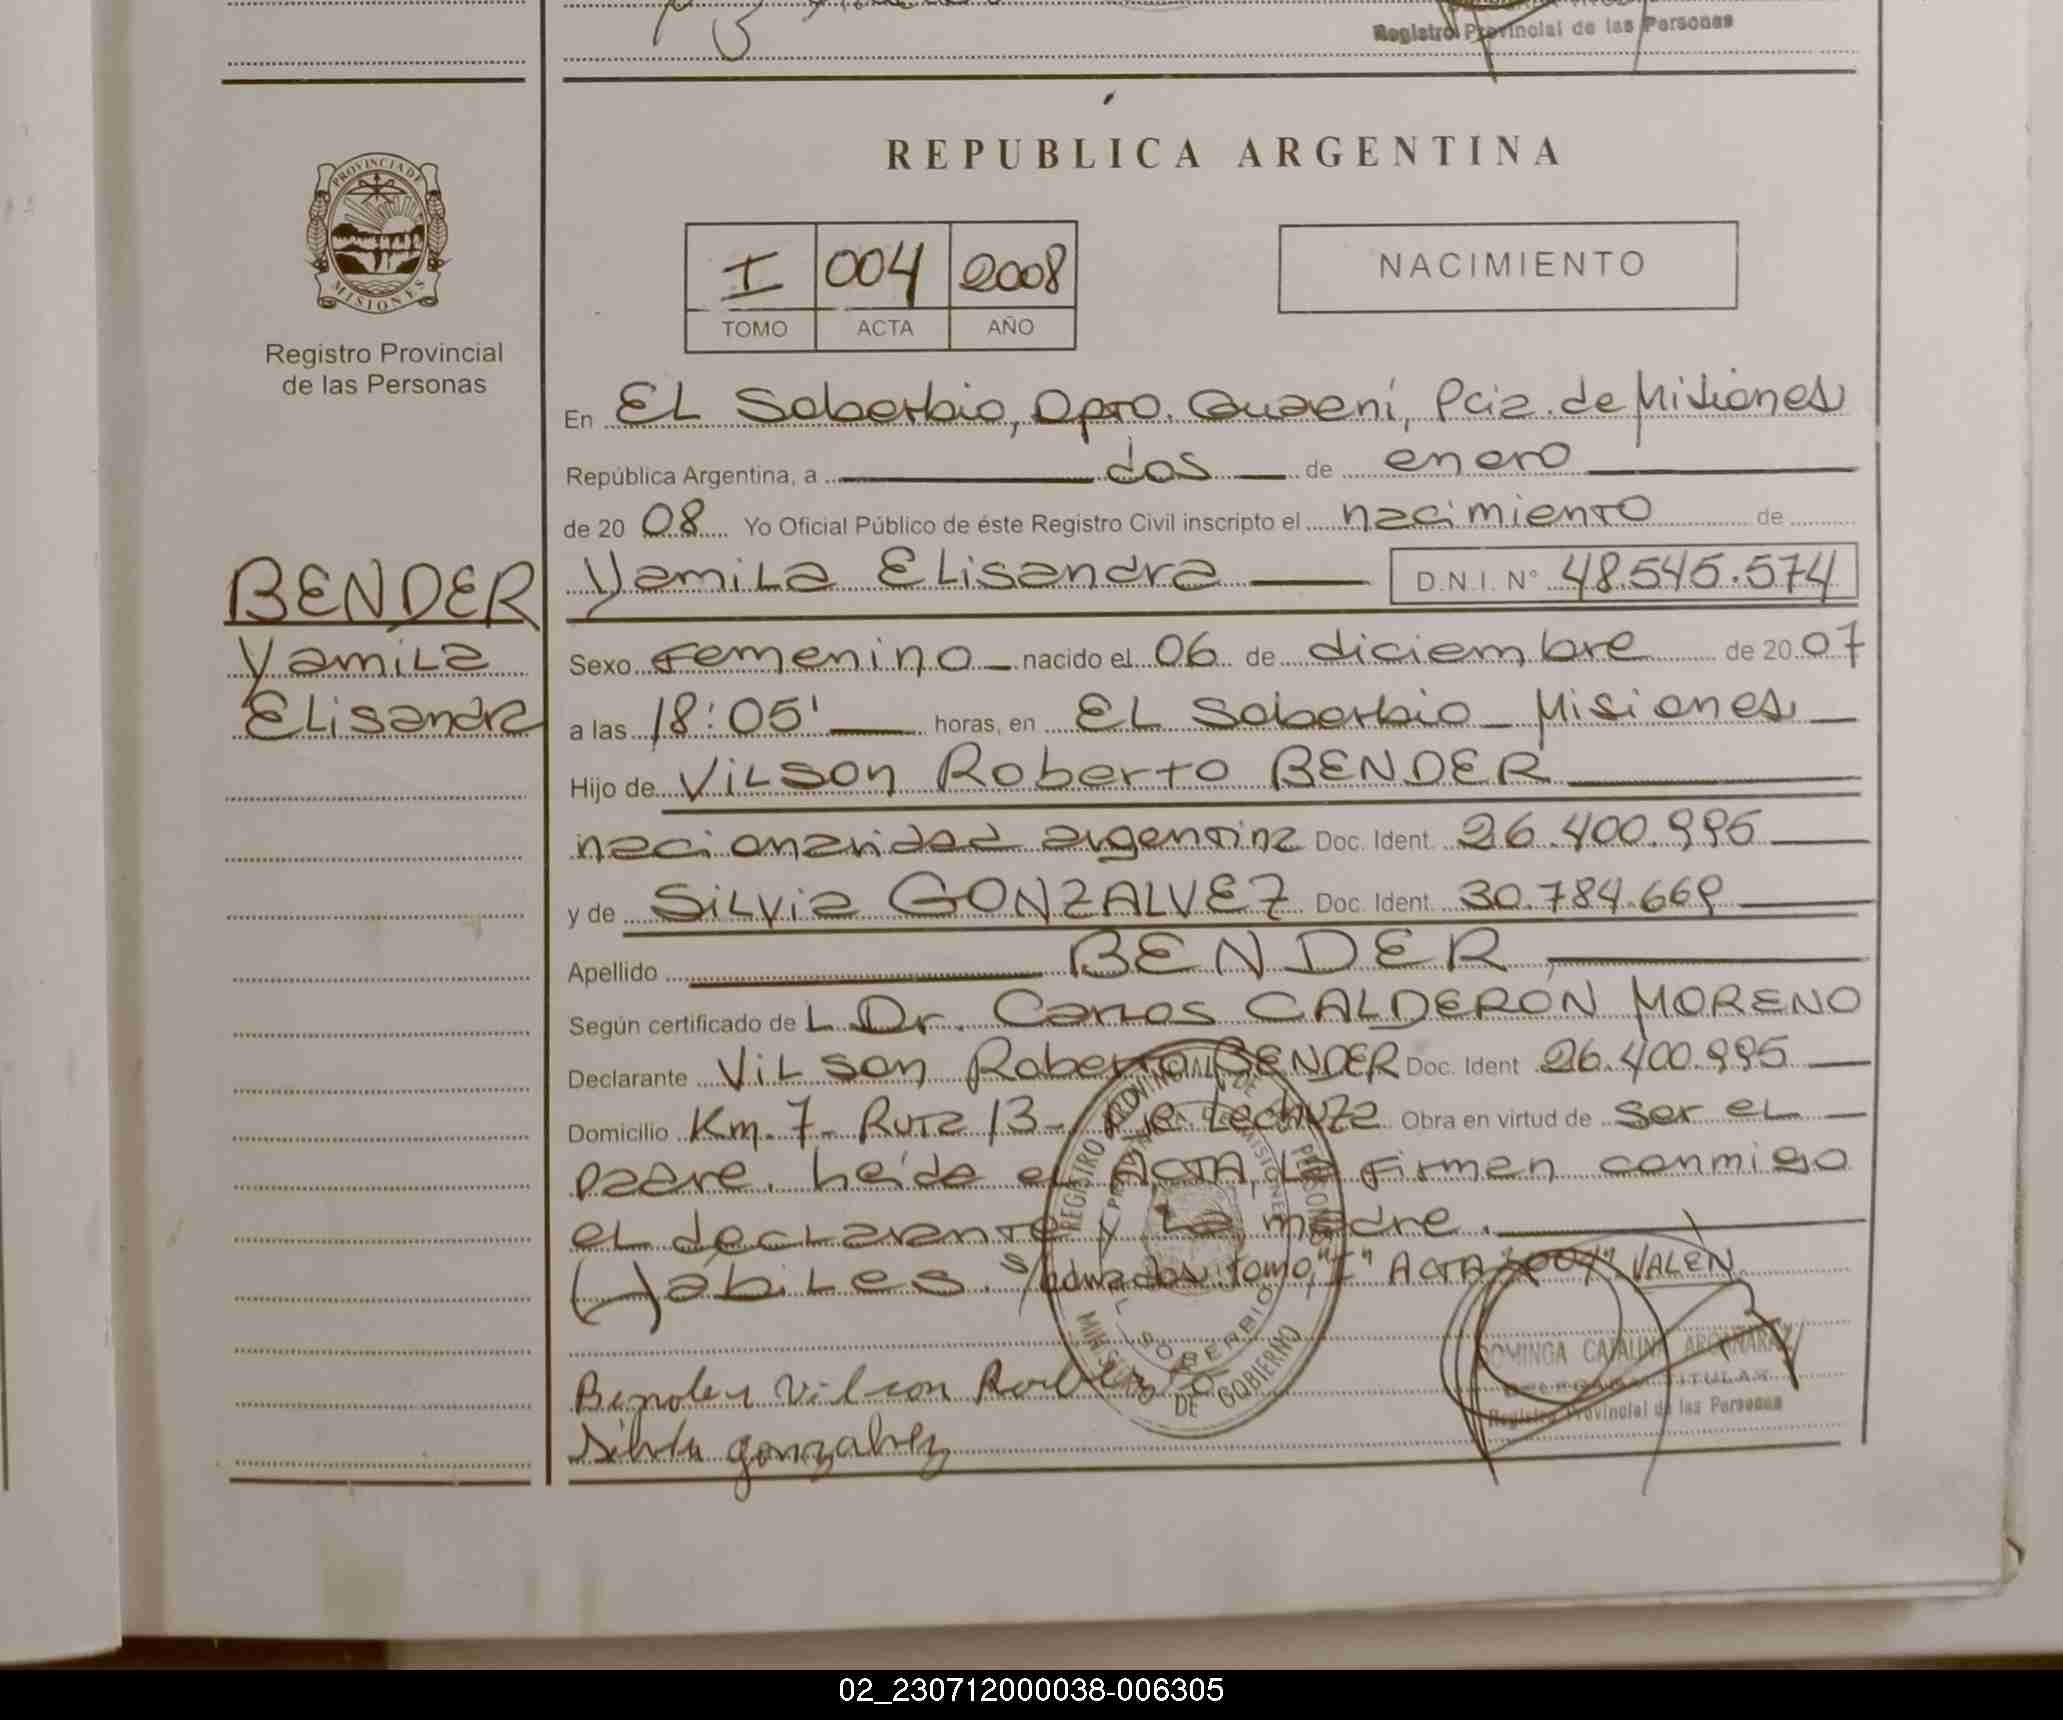 Registro Provincial de las Personas
REPUBLICA ARGENTINA
PROVINCIA DE
MISIONES
Registro Provincial
de las Personas
I 004 2008
TOMO ACTA AÑO
NACIMIENTO
En EL Soberbio, Dpto. Guaraní, Pcia. de Misiones
República Argentina, a dos de enero
de 20 08 Yo Oficial Público de éste Registro Civil inscripto el nacimiento de
Yamila Elisandra D.N.I. N° 48.545.574
BENDER
Yamila
Elisandra
Sexo Femenino nacido el 06 de diciembre de 20 07
a las 18:05' horas, en EL Soberbio - Misiones
Hijo de Vilson Roberto BENDER
nacionalidad argentina Doc. Ident. 26.400.995
y de Silvia GONZALVEZ Doc. Ident. 30.784.669
Apellido BENDER
Según certificado de L Dr. Carlos CALDERÓN MORENO
Declarante Vilson Roberto BENDER Doc. Ident 26.400.995
Domicilio Km. 7 - Ruta 13 - Lechuza Obra en virtud de ser el
padre. Leída el ACTA, la firman conmigo
el declarante y la madre.
(-) ábiles. tomo "I" ACTA "004" VALEN
REGISTRO PROVINCIAL DE LAS PERSONAS
MINISTERIO DE GOBIERNO
EL SOBERBIO
Bender Vilson
Silvia gonzalvez
DOMINGA CATALINA
DELEGADA TITULAR
Registro Provincial de las Personas
02_230712000038-006305